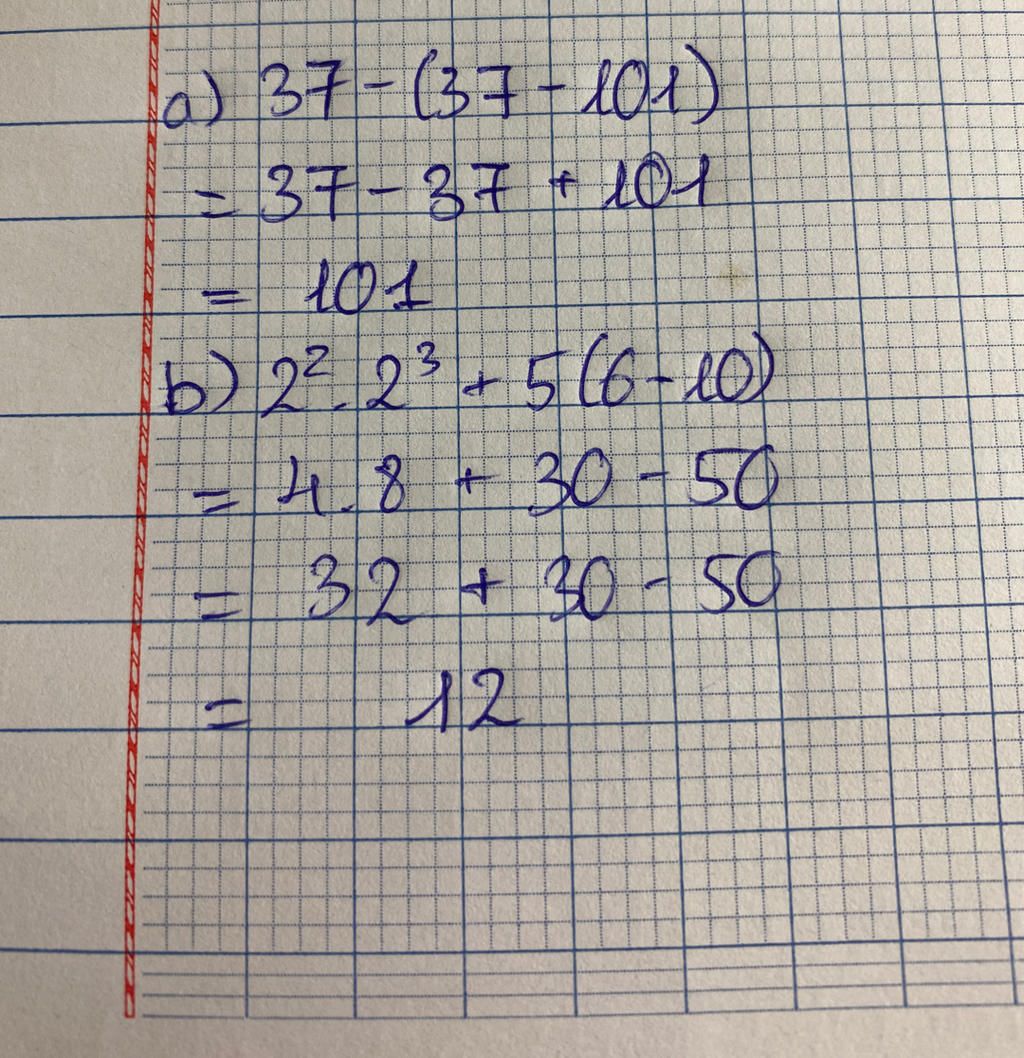 a) 37 - (37 - 101)
= 37 - 37 + 101
= 101
b) 2² . 2³ + 5(6 - 10)
= 4 . 8 + 30 - 50
= 32 + 30 - 50
= 12